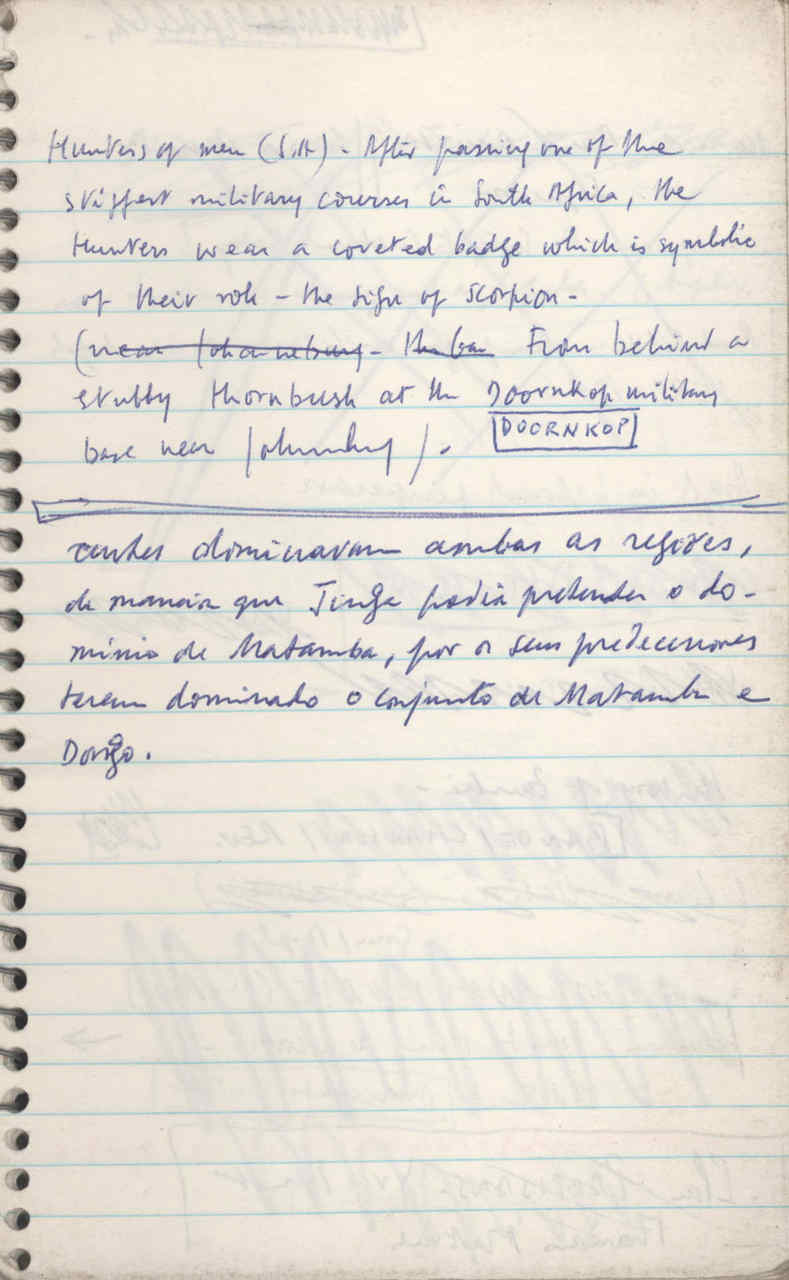 Hunters of men (S.A) - After passing one of the
stiffest military courses in South Africa, the
Hunters wear a coveted badge which is symbolic
of their role - the sign of scorpion -
(near Johannesburg - From behind a
stubby thornbush at the Doornkop military
base near Johannesburg).
DOORNKOP
dominavam ambas as regiões,
de maneira que Jinga podia pretender o do-
mínio de Matamba, por os seus predecessores
terem dominado o conjunto de Matamba e
Dongo.